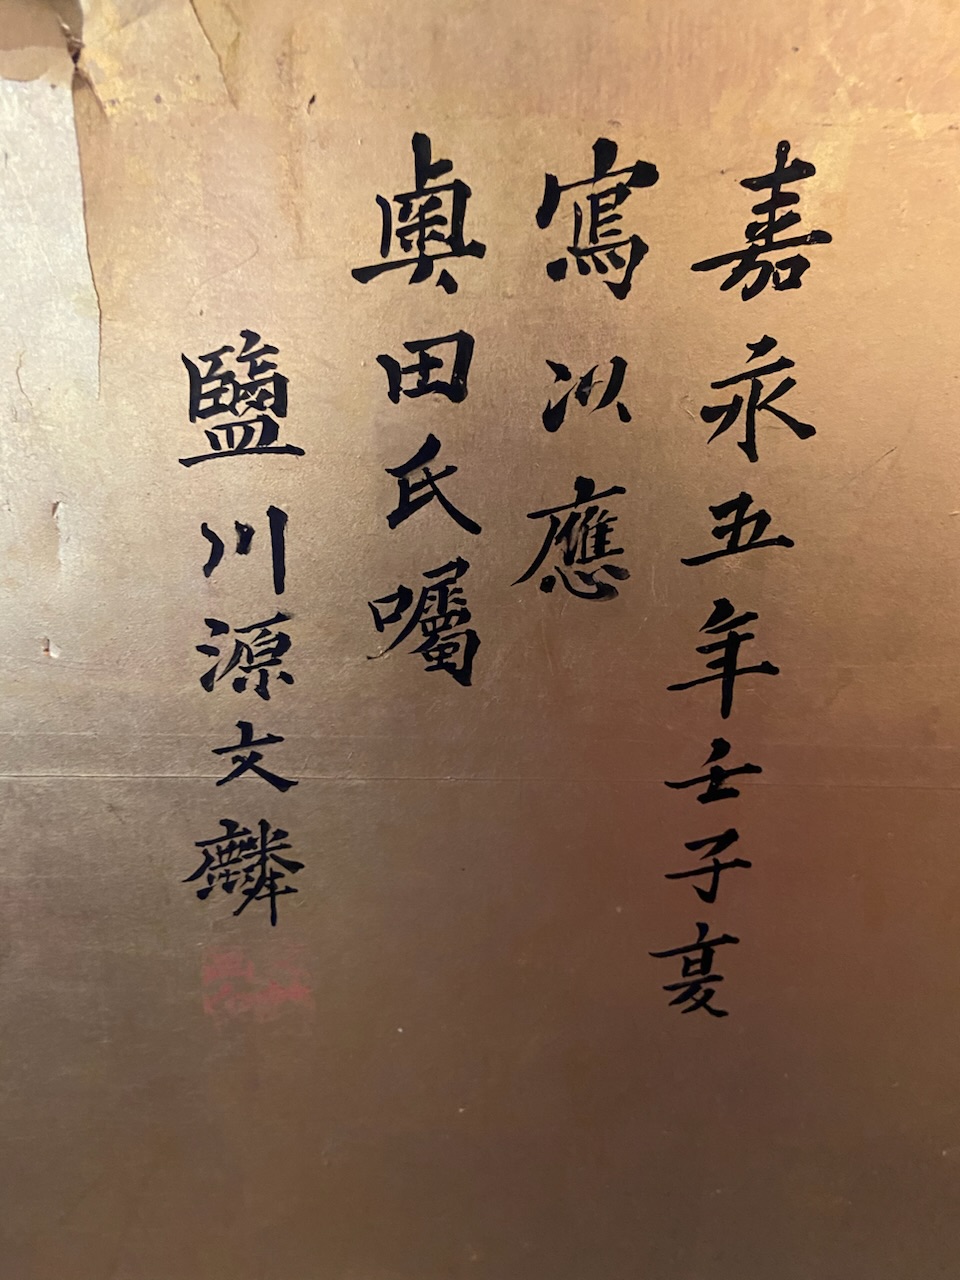 嘉永五年壬子夏
寫以應
奧田氏囑
鹽川源文麟